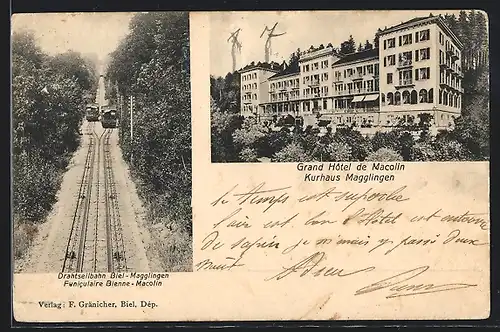 Grand Hôtel de Macolin
Kurhaus Magglingen
Drahtseilbahn Biel-Magglingen
Funiculaire Bienne-Macolin
Verlag: F. Gränicher, Biel, Dép.
le temps est superbe
l'air est bon l'Hôtel est entouré
de sapin je m'en vais y passé deux
nuit
Adieu